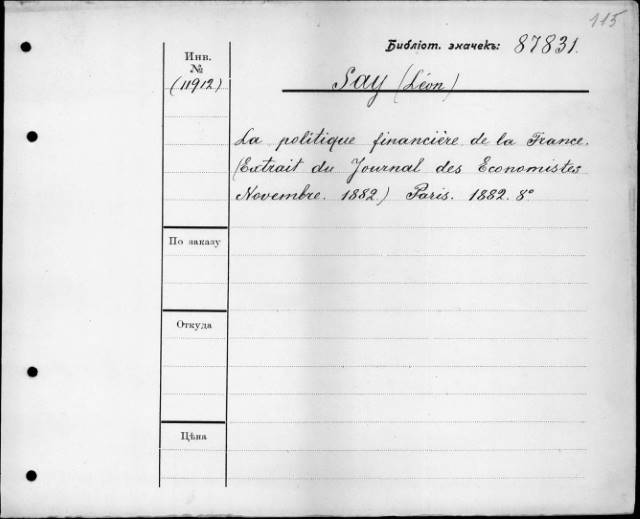 115
Библіот. значекъ: 87831.
Инв.
№
(11912)
Say (Léon)
La politique financière de la France.
(Extrait du Journal des Economistes
Novembre. 1882.) Paris. 1882. 8°
По заказу
Откуда
Цѣна